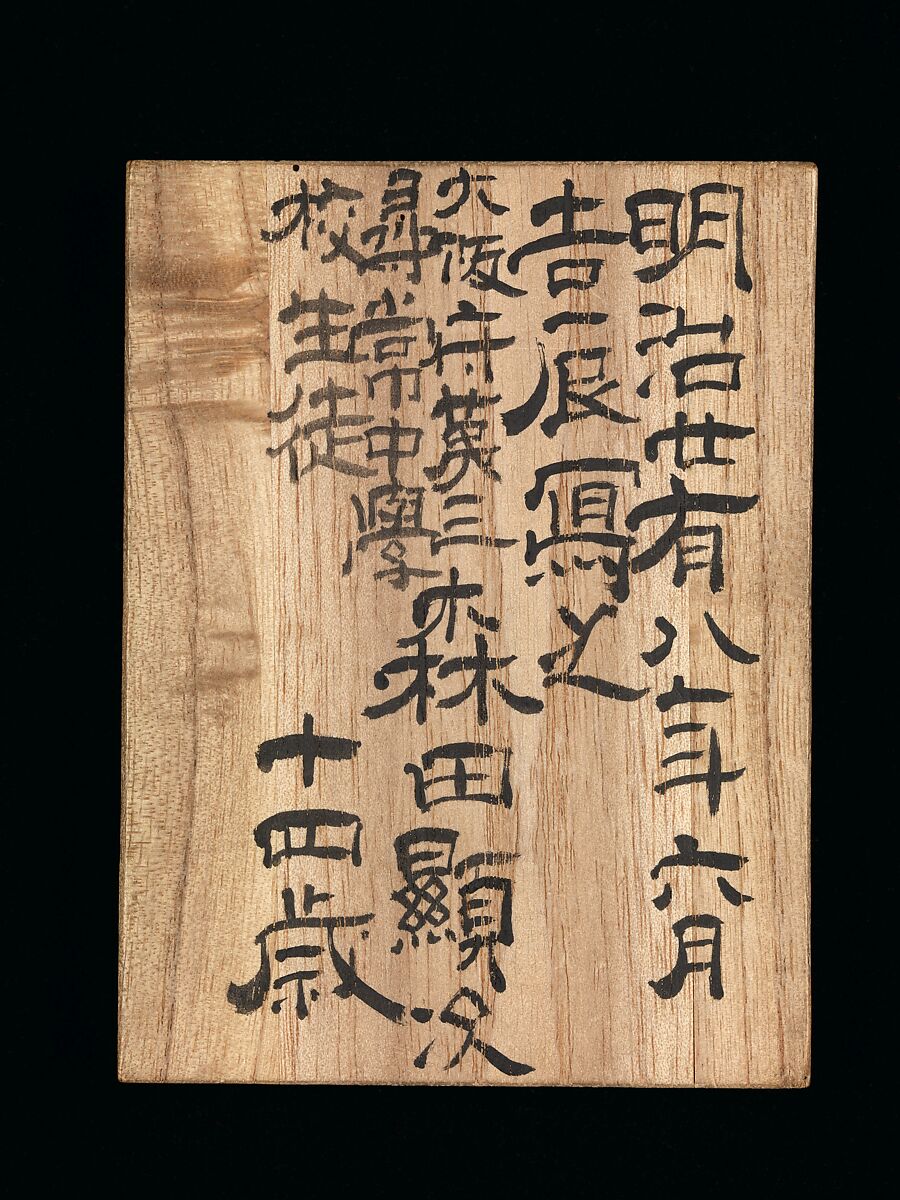 明治廿有八年六月
吉辰寫之
大阪府第三
尋常中學
校生徒
森田顯次
十四歳